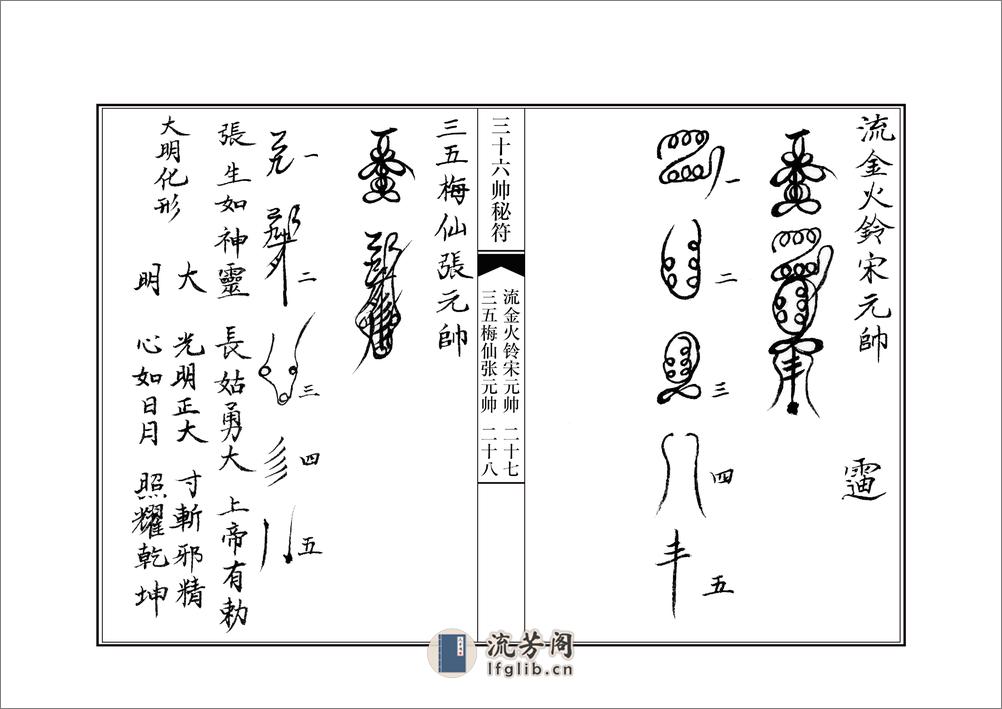 流金火鈴宋元帥
一
二
三
四
五
三十六帅秘符
流金火铃宋元帅 二十七
三五梅仙张元帅 二十八
三五梅仙張元帥
一
二
三
四
五
張生如神靈 長姑勇大 上帝有勅
大明化形
大 光明正大 寸斬邪精
明 心如日月 照耀乾坤
流芳阁
lfglib.cn